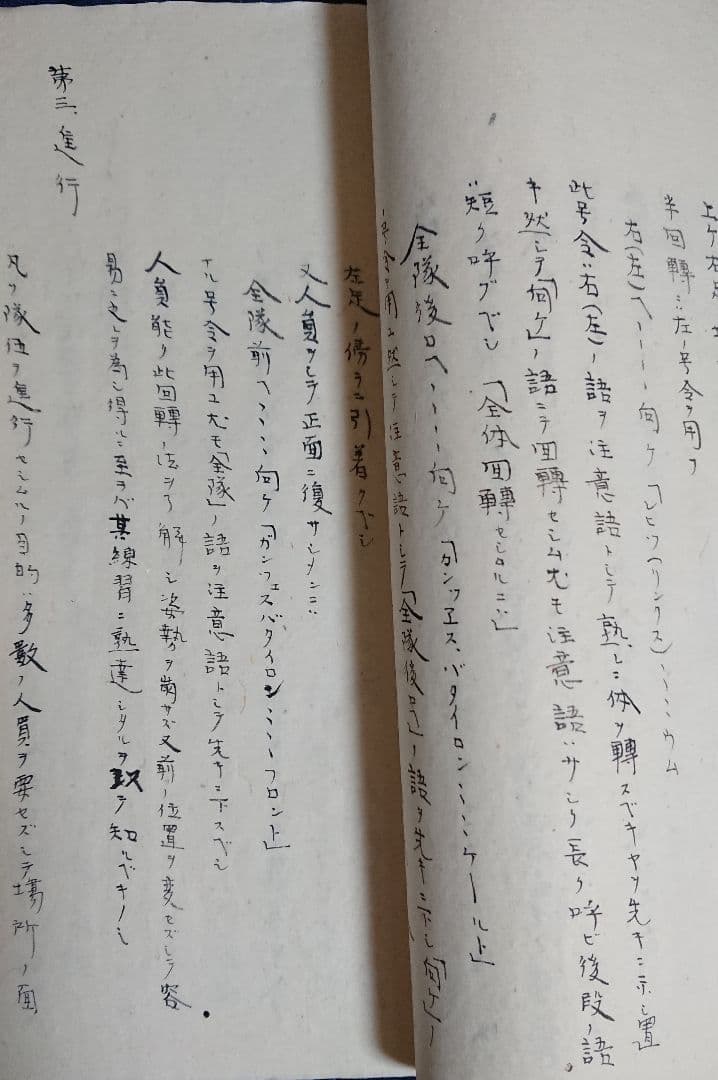 半回轉ニ左ノ号令ヲ用フ
右(左)へ〻〻〻向ケ「レヒツ(リンクス)〻〻〻〻ウム
此号令ハ右(左)ノ語ヲ注意語トシテ熟レニ体ヲ轉スベキヤヲ先キニ示シ置
キ然シテ「向ケ」ノ語ニテ回轉セシム尤モ注意語ハサシク長ク呼ビ後段ノ語
ハ短ク呼ブベシ「全体回轉セシムルニハ」
全隊後口へ〻〻〻向ケ「ガンツヱス、バタイロン〻〻〻ケールト」
ノ号令ヲ用ユ然シテ注意語トシテ「全隊後口」ノ語ヲ先キニ下シ「向ケ」ノ
左足ノ傍ラニ引着クベシ
又人員ヲシテ正面ニ復サシメンニハ
全隊前へ〻〻〻向ケ「ガンツェスバタイロン〻〻〻フロント」
ナル号令ヲ用ユ尤モ「全隊」ノ語ヲ注意語トシテ先キニ下スベシ
人員能ク此回轉ノ法ヲ了解シ姿勢ヲ崩サズ又前ノ位置ヲ変セズシテ容
易ニ之レヲ為シ得ルニ至ラバ其練習ニ熟達シタルヲ以テ知ルベキノミ
第三、進行
凡ソ隊伍ヲ進行セシムルノ目的ハ多数ノ人員ヲ要セズシテ場所ノ面